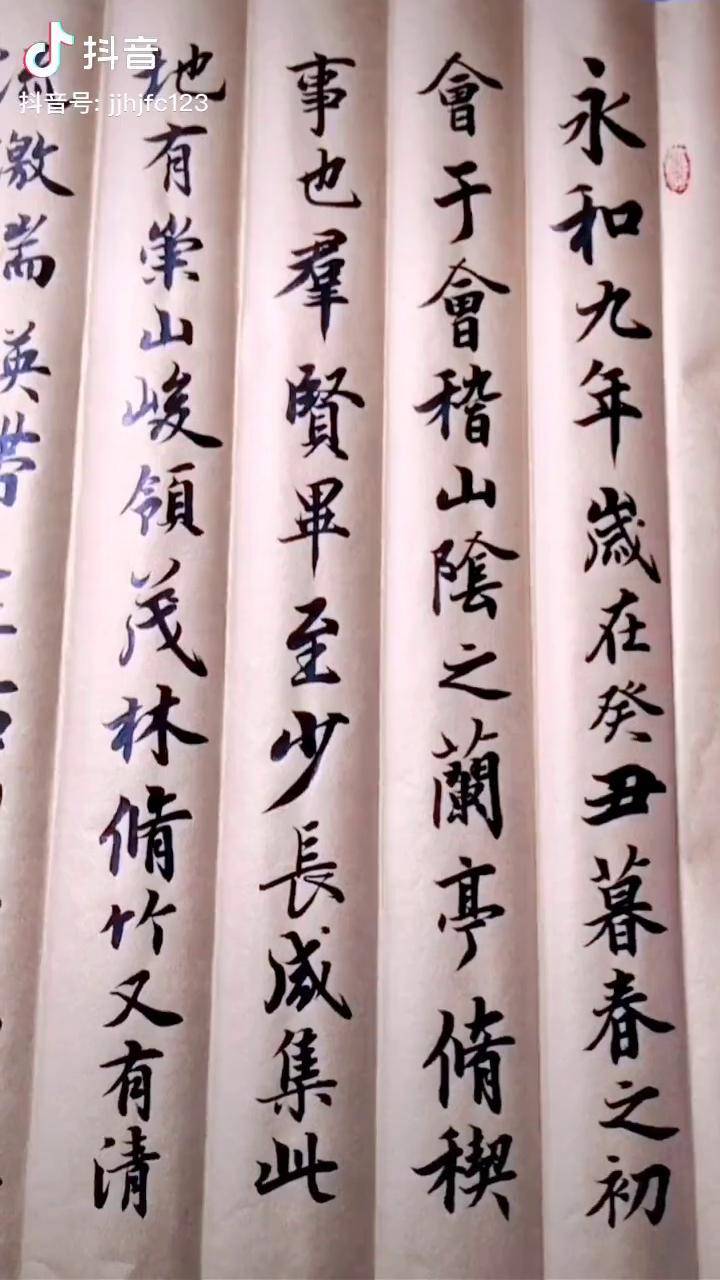 抖音
抖音号: jjhjfc123
永和九年歲在癸丑暮春之初
會于會稽山陰之蘭亭脩稧
事也羣賢畢至少長咸集此
地有崇山峻領茂林脩竹又有清
流激湍英帶